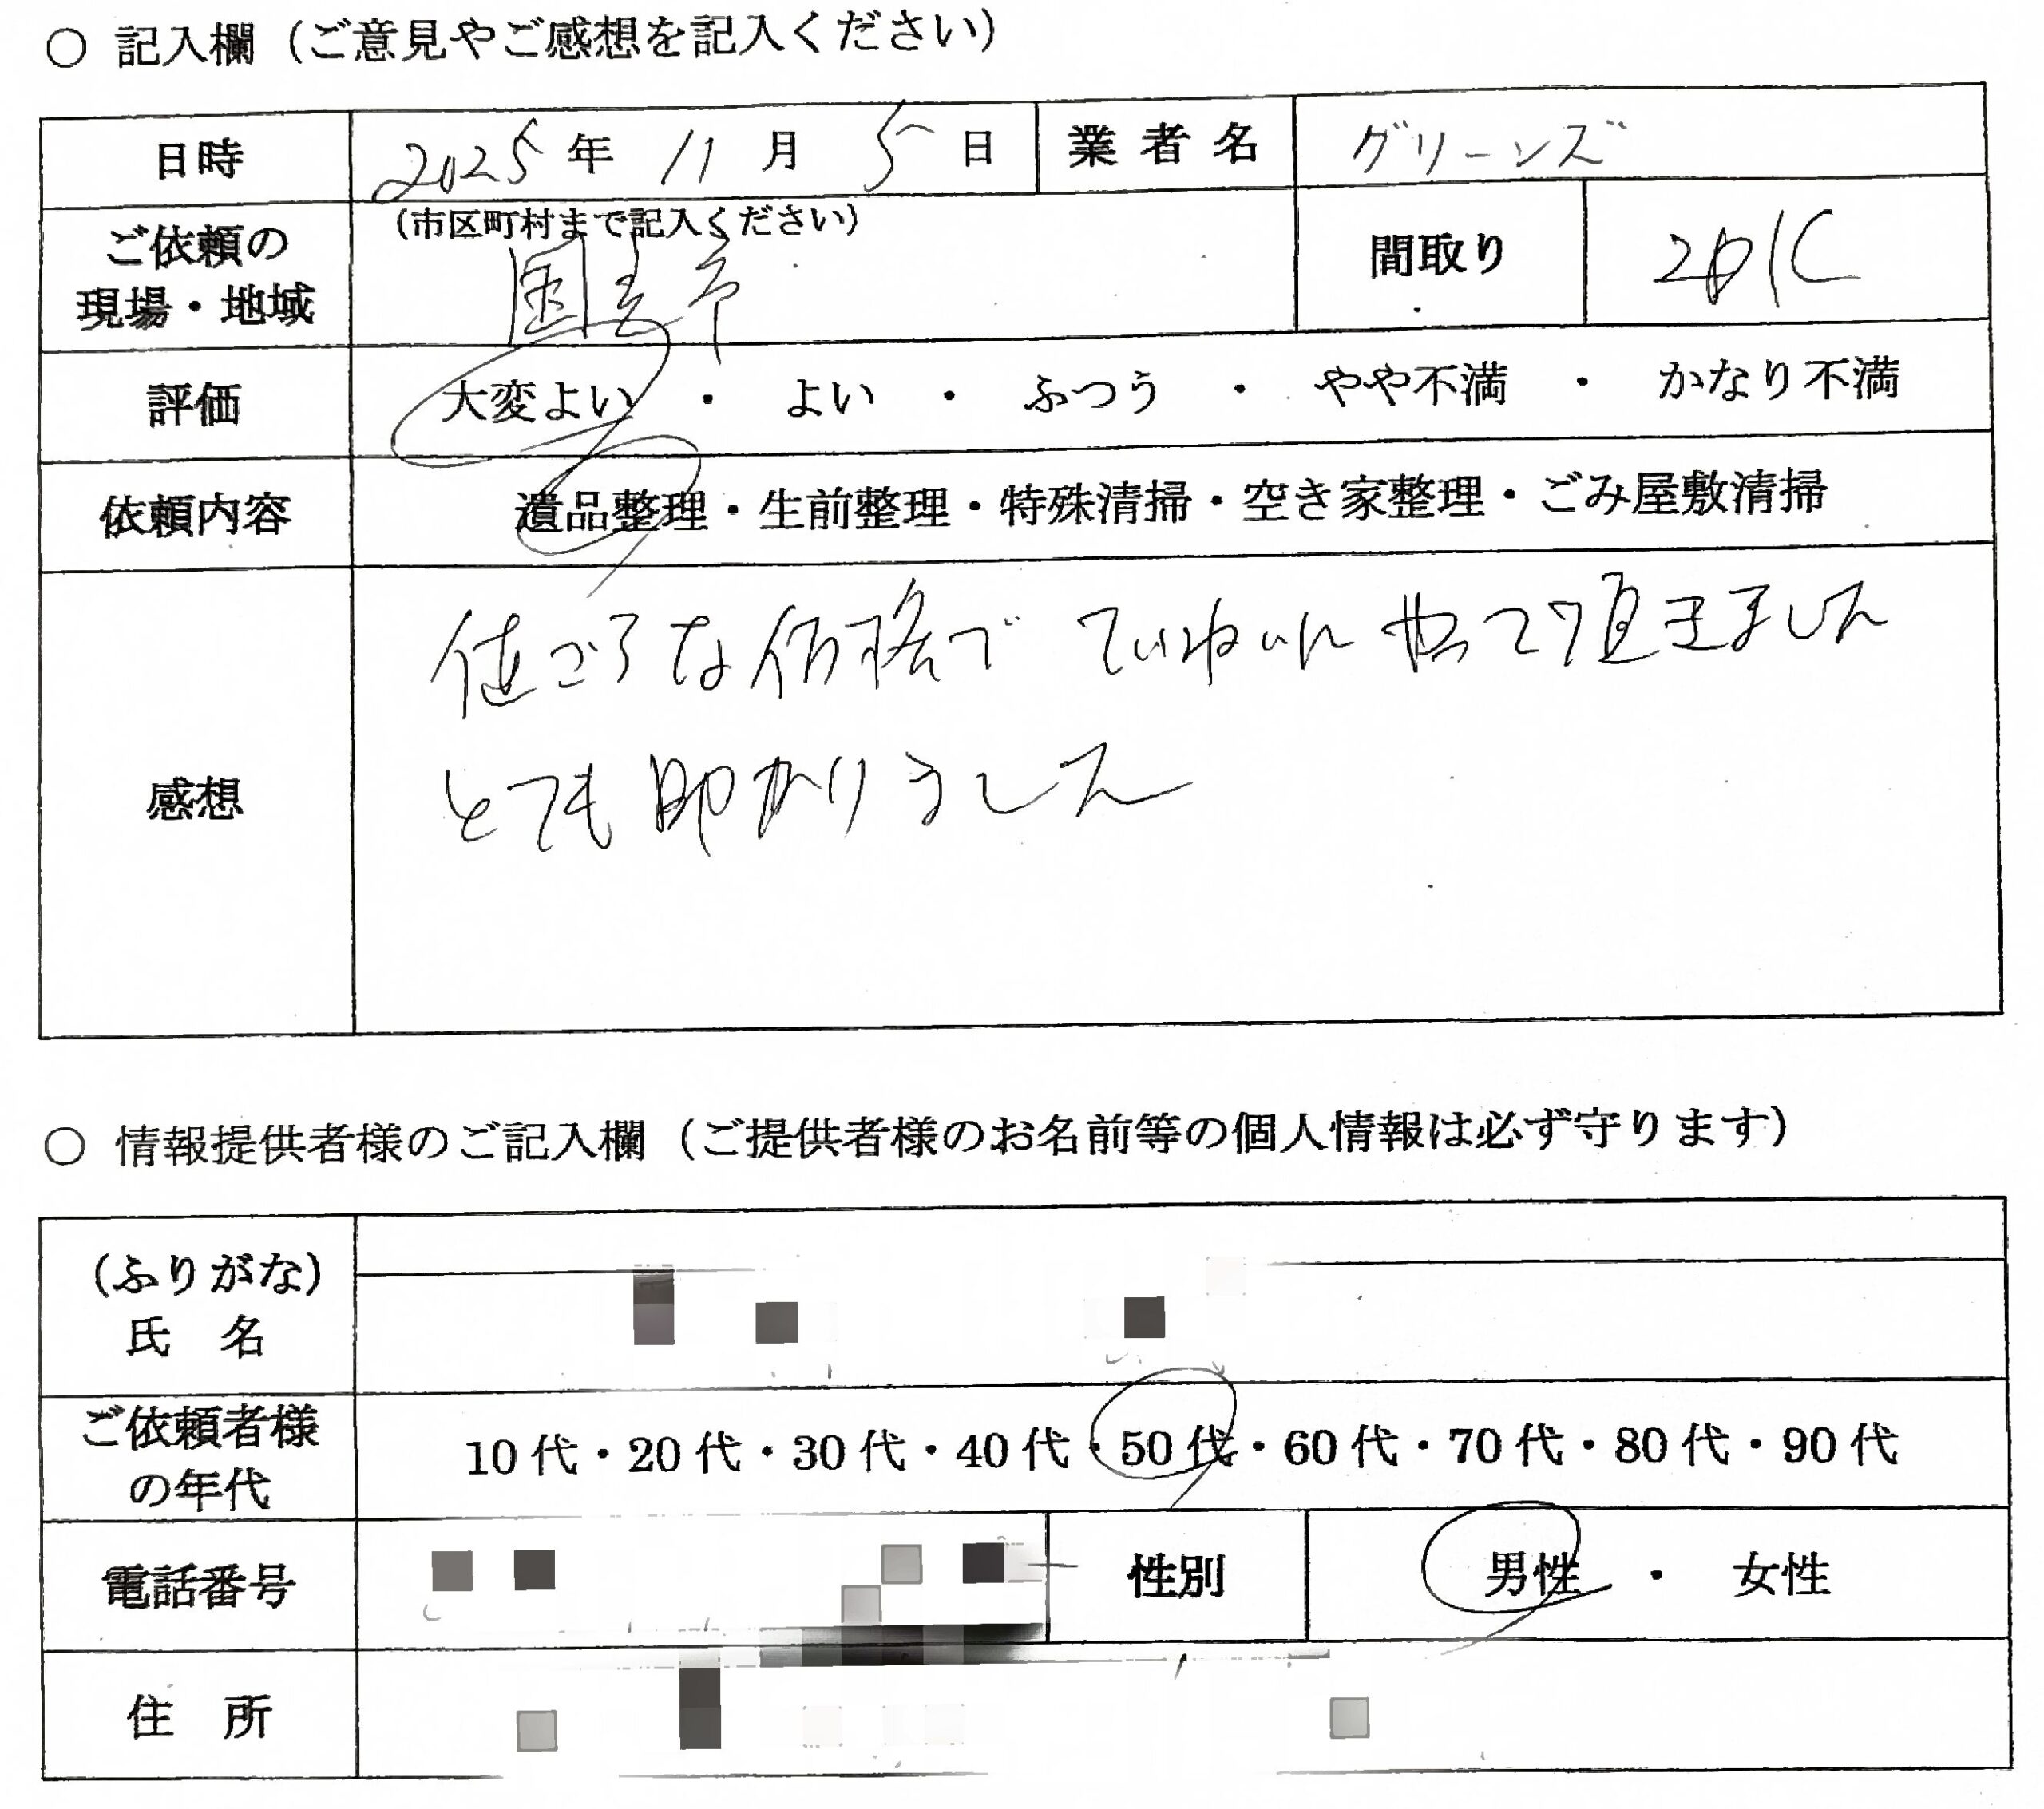 ○ 記入欄（ご意見やご感想を記入ください）
日時 2025年 11月 5日 業者名 グリーンズ
ご依頼の現場・地域 （市区町村まで記入ください） 間取り
国立市 2DK
評価 大変よい ・ よい ・ ふつう ・ やや不満 ・ かなり不満
依頼内容 遺品整理・生前整理・特殊清掃・空き家整理・ごみ屋敷清掃
感想
値ごろな価格で ていねいに やって頂きました
とても助かりました
○ 情報提供者様のご記入欄（ご提供者様のお名前等の個人情報は必ず守ります）
（ふりがな）
氏 名
ご依頼者様の年代 10代・20代・30代・40代・50代・60代・70代・80代・90代
電話番号 性別 男性 ・ 女性
住 所